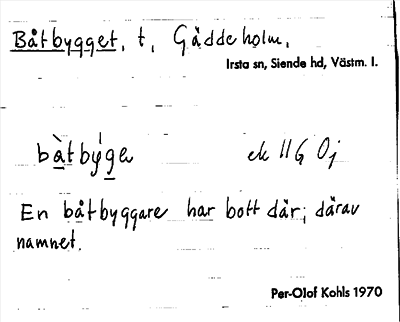 Båtbygget, t, Gäddeholm,
Irsta sn, Siende hd, Västm. l.
bàtbýge ek 11G Oj
En båtbyggare har bott där; därav
namnet.
Per-Olof Kohls 1970